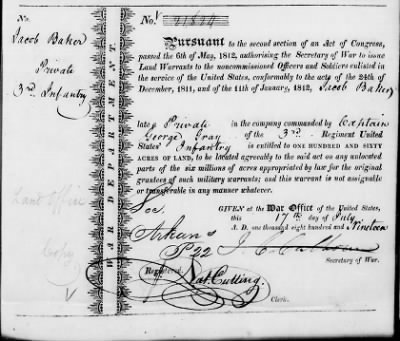 No.
Jacob Baker
Private
3rd Infantry
Land Office
Copy
WAR DEPARTMENT.
No.
Pursuant to the second section of an Act of Congress,
passed the 6th of May, 1812, authorising the Secretary of War to issue
Land Warrants to the noncommissioned Officers and Soldiers enlisted in
the service of the United States, conformably to the acts of the 24th of
December, 1811, and of the 11th of January, 1812, Jacob Baker
late a Private in the company commanded by Captain
George Gray of the 3rd Regiment United
States' Infantry is entitled to ONE HUNDRED AND SIXTY
ACRES OF LAND, to be located agreeably to the said act on any unlocated
parts of the six millions of acres appropriated by law for the original
grantees of such military warrants; and this warrant is not assignable
or transferable in any manner whatever.
GIVEN at the War Office of the United States,
this 17th day of July
A. D. one thousand eight hundred and Nineteen
J. C. Calhoun
Secretary of War.
Arkans
P 22
Registered
Nat. Cutting.
Clerk.